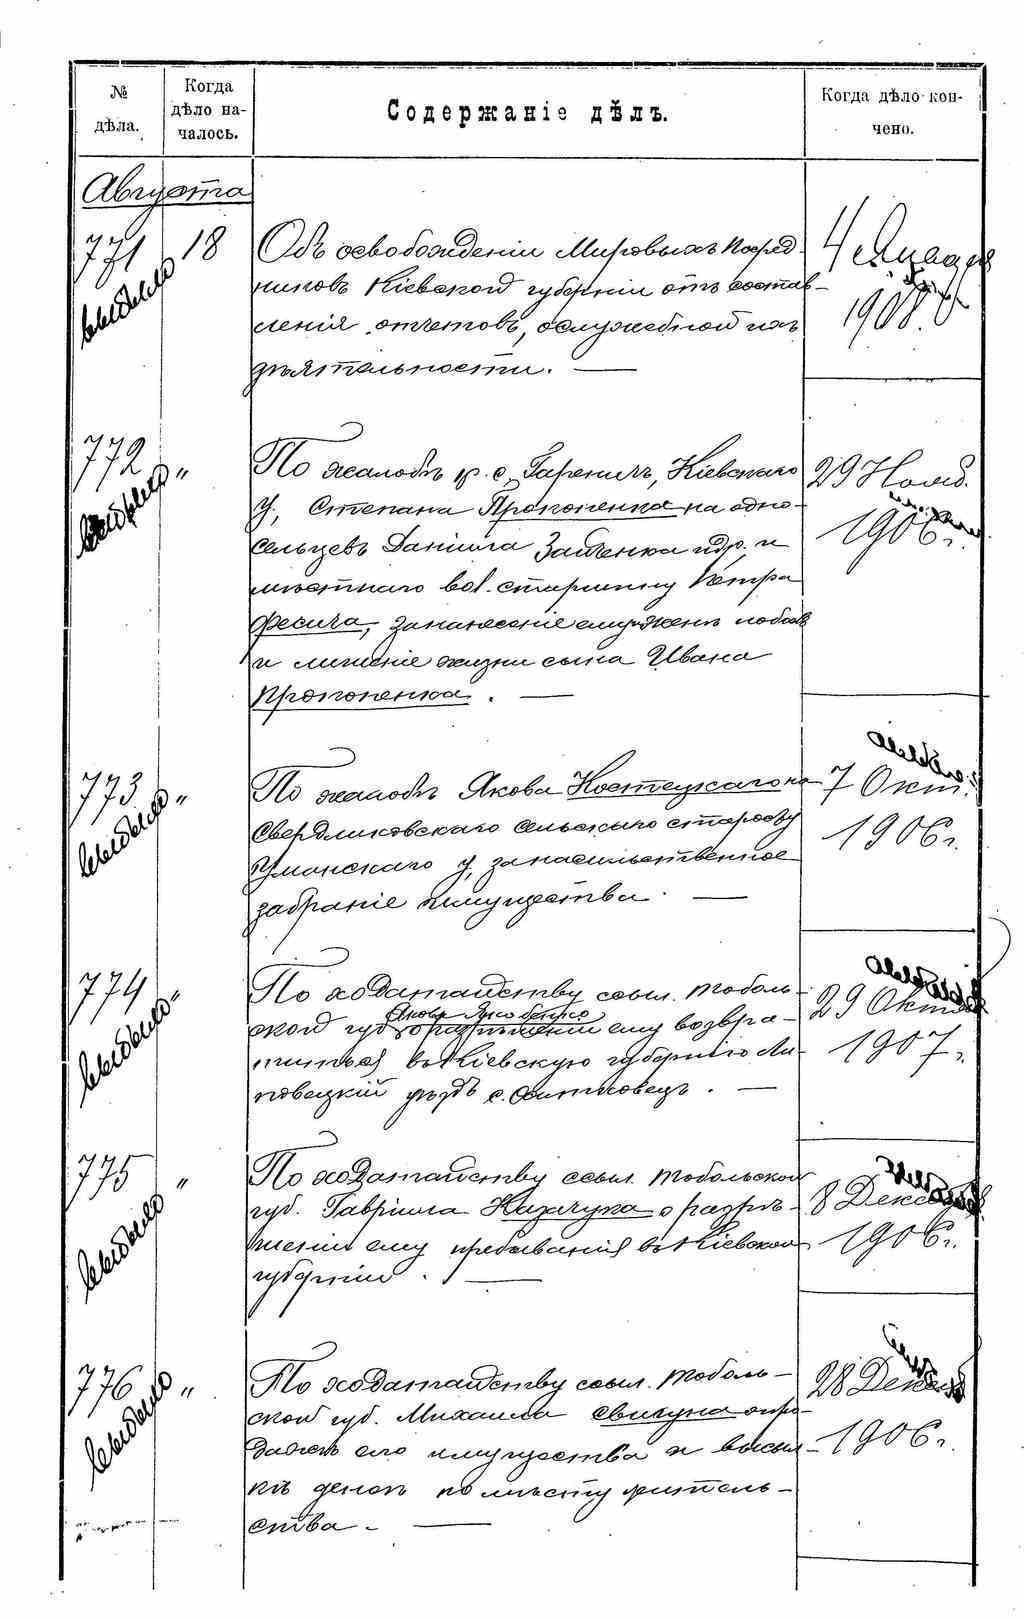 №
дѣла.
Когда
дѣло на-
чалось.
Содержаніе дѣлъ.
Когда дѣло кон-
чено.
Августа
771
18
Объ освобожденіи Мировыхъ Посред-
никовъ Кіевской губерніи отъ состав-
ленія отчетовъ, о служебной ихъ
дѣятельности. —
4 Января
1908.
772
"
По жалобѣ кр. с. Гаренич, Кіевскаго
у., Степана Прокопенка на одно-
сельцевъ Даніила Заиченка и др. и
мѣстнаго вол. старшину Петра
Фесича, за нанесеніе ему и женѣ побоев
и лишеніе жизни сына Ивана
Прокопенка. —
29 Нояб.
1906 г.
773
"
По жалобѣ Якова Костецкаго на
Свердликовскаго сельскаго старосту
Уманскаго у, за насильственное
забраніе имущества. —
7 Окт.
1906 г.
774
"
По ходатайству ссыл. Тоболь-
ской губ. о разрѣшеніи ему возвра-
титься въ Кіевскую губернію Ли-
повецкій уѣздъ с. Ситковецъ. —
29 Октяб
1907 г.
775
"
По ходатайству ссыл. Тобольской
губ. Гавріила Казачука о разрѣ-
шеніи ему пребыванія въ Кіевской
губерніи. —
8 Декабря
1906 г.
776
"
По ходатайству ссыл. Тоболь-
ской губ. Михаила Свигуна о про-
дажѣ его имущества и высыл-
кѣ денегъ по мѣсту житель-
ства. —
28 Декаб
1906 г.